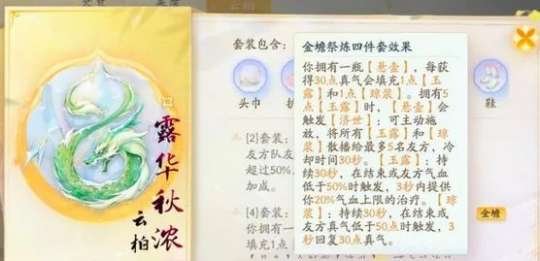 套装包含:
金蟾祭炼四件套效果
你拥有一瓶【悬壶】,每获
得30点真气会填充1点【玉
露】和1点【琼浆】。拥有5
点【玉露】时,【悬壶】会
触发【济世】;可主动施
放,将所有【玉露】和【琼
浆】散播给最多5名友方,冷
却时间30秒。【玉露】:持
续30秒,在结束或友方气血
低于50%时触发,3秒内提供
你20%气血上限的治疗。【琼
浆】:持续30秒,在结束或
友方真气低于50点时触发,3
秒回复30点真气。
头巾
鞋
[2]套装:
友方队友
超过50%,
加成。
[4]套装:
你拥有一
填充1点
金蟾
露华秋浓
云柏